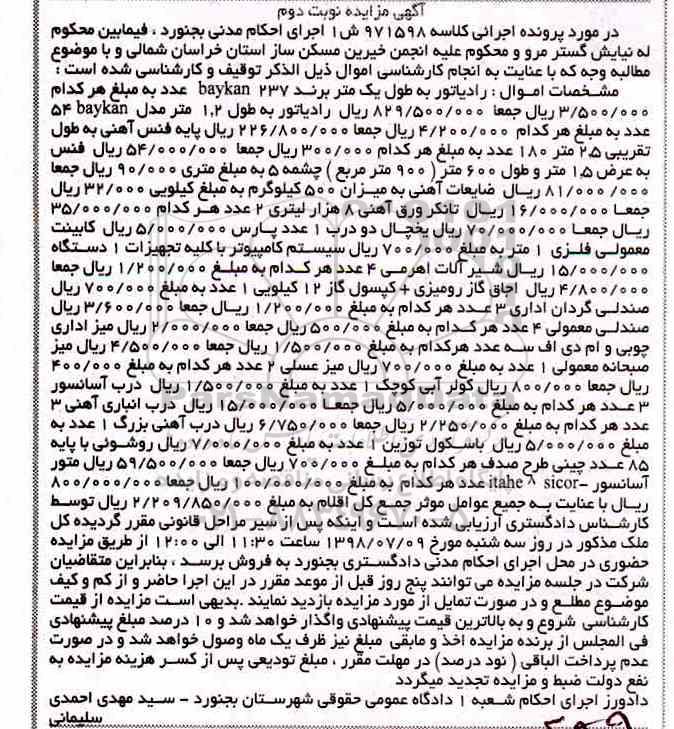 آگهی مزایده نوبت دوم
در مورد پرونده اجرائی کلاسه ۹۷۱۵۹۸ ش۱ اجرای احکام مدنی بجنورد ، فیمابین محکوم
له نیایش گستر مرو و محکوم علیه انجمن خیرین مسکن ساز استان خراسان شمالی و با موضوع
مطالبه وجه که با عنایت به انجام کارشناسی اموال ذیل الذکر توقیف و کارشناسی شده است :
مشخصات اموال : رادیاتور به طول یک متر برند baykan ۲۳۷ عدد به مبلغ هر کدام
۳/۵۰۰/۰۰۰ ریال جمعا ۸۲۹/۵۰۰/۰۰۰ ریال رادیاتور به طول ۱,۲ متر مدل baykan ۵۴
عدد به مبلغ هر کدام ۴/۲۰۰/۰۰۰ ریال جمعا ۲۲۶/۸۰۰/۰۰۰ ریال پایه فنس آهنی به طول
تقریبی ۲,۵ متر ۱۸۰ عدد به مبلغ هر کدام ۳۰۰/۰۰۰ ریال جمعا ۵۴/۰۰۰/۰۰۰ ریال فنس
به عرض ۱,۵ متر و طول ۶۰۰ متر ( ۹۰۰ متر مربع ) چشمه ۵ به مبلغ متری ۹۰/۰۰۰ ریال جمعا
۸۱/۰۰۰/۰۰۰ ریال ضایعات آهنی به میزان ۵۰۰ کیلوگرم به مبلغ کیلویی ۳۲/۰۰۰ ریال
جمعا ۱۶/۰۰۰/۰۰۰ ریال تانکر ورق آهنی ۸ هزار لیتری ۲ عدد هر کدام ۳۵/۰۰۰/۰۰۰
ریال جمعا ۷۰/۰۰۰/۰۰۰ ریال یخچال دو درب ۱ عدد پارس ۵/۰۰۰/۰۰۰ ریال کابینت
معمولی فلزی ۱ متر به مبلغ ۷۰۰/۰۰۰ ریال سیستم کامپیوتر با کلیه تجهیزات ۱ دستگاه
۱۵/۰۰۰/۰۰۰ ریال شیر آلات اهرمی ۴ عدد هر کدام به مبلغ ۱/۲۰۰/۰۰۰ ریال جمعا
۴/۸۰۰/۰۰۰ ریال اجاق گاز رومیزی + کپسول گاز ۱۲ کیلویی ۱ عدد به مبلغ ۷۰۰/۰۰۰ ریال
صندلی گردان اداری ۳ عدد هر کدام به مبلغ ۱/۲۰۰/۰۰۰ ریال جمعا ۳/۶۰۰/۰۰۰ ریال
صندلی معمولی ۴ عدد هر کدام به مبلغ ۵۰۰/۰۰۰ ریال جمعا ۲/۰۰۰/۰۰۰ ریال میز اداری
چوبی و ام دی اف سه عدد هرکدام به مبلغ ۱/۵۰۰/۰۰۰ ریال جمعا ۴/۵۰۰/۰۰۰ ریال میز
صبحانه معمولی ۱ عدد به مبلغ ۷۰۰/۰۰۰ ریال میز عسلی ۲ عدد هر کدام به مبلغ ۴۰۰/۰۰۰
ریال جمعا ۸۰۰/۰۰۰ ریال کولر آبی کوچک ۱ عدد به مبلغ ۱/۵۰۰/۰۰۰ ریال درب آسانسور
۳ عدد هر کدام به مبلغ ۵/۰۰۰/۰۰۰ ریال جمعا ۱۵/۰۰۰/۰۰۰ ریال درب انباری آهنی ۳
عدد هر کدام به مبلغ ۲/۲۵۰/۰۰۰ ریال جمعا ۶/۷۵۰/۰۰۰ ریال درب آهنی بزرگ ۱ عدد به
مبلغ ۵/۰۰۰/۰۰۰ ریال باسکول توزین ۱ عدد به مبلغ ۷/۰۰۰/۰۰۰ ریال روشوئی با پایه
۸۵ عدد چینی طرح صدف هر کدام به مبلغ ۷۰۰/۰۰۰ ریال جمعا ۵۹/۵۰۰/۰۰۰ ریال متور
آسانسور itahe ۸ sicor- عدد هر کدام به مبلغ ۱۰۰/۰۰۰/۰۰۰ ریال جمعا ۸۰۰/۰۰۰/۰۰۰
ریال با عنایت به جمیع عوامل موثر جمع کل اقلام به مبلغ ۲/۲۰۹/۸۵۰/۰۰۰ ریال توسط
کارشناس دادگستری ارزیابی شده است و اینکه پس از سیر مراحل قانونی مقرر گردیده کل
ملک مذکور در روز سه شنبه مورخ ۱۳۹۸/۰۷/۰۹ ساعت ۱۱:۳۰ الی ۱۲:۰۰ از طریق مزایده
حضوری در محل اجرای احکام مدنی دادگستری بجنورد به فروش برسد ، بنابراین متقاضیان
شرکت در جلسه مزایده می توانند پنج روز قبل از موعد مقرر در این اجرا حاضر و از کم و کیف
موضوع مطلع و در صورت تمایل از مورد مزایده بازدید نمایند .بدیهی است مزایده از قیمت
کارشناسی شروع و به بالاترین قیمت پیشنهادی واگذار خواهد شد و ۱۰ درصد مبلغ پیشنهادی
فی المجلس از برنده مزایده اخذ و مابقی مبلغ نیز ظرف یک ماه وصول خواهد شد و در صورت
عدم پرداخت الباقی ( نود درصد) در مهلت مقرر ، مبلغ تودیعی پس از کسر هزینه مزایده به
نفع دولت ضبط و مزایده تجدید میگردد
دادورز اجرای احکام شعبه ۱ دادگاه عمومی حقوقی شهرستان بجنورد - سید مهدی احمدی
سلیمانی